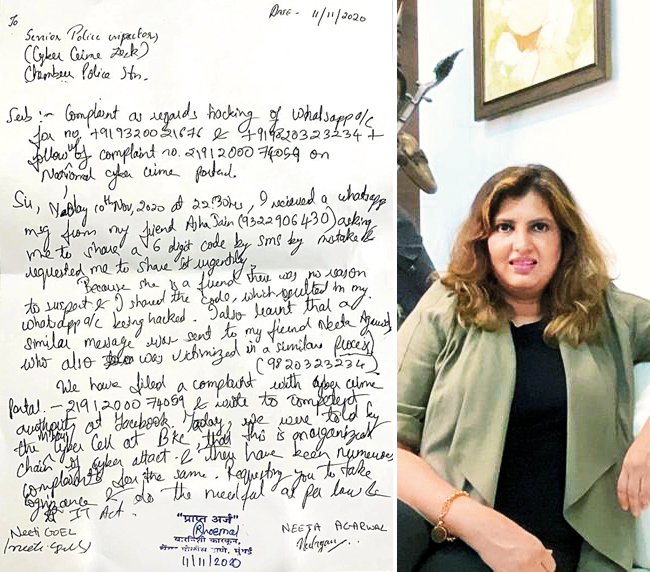 To
DATE - 11/11/2020
Senior Police inspector,
(Cyber Crime Deck)
Chembur Police Stn.
Sub :- Complaint as regards hacking of Whatsapp a/c
for no. +919320021676 & +919820323234 +
follow up of complaint no. 21912000 74059 on
National cyber crime portal.
Sir, 10th Nov, 2020 at 22.30hrs, I recieved a whatsapp
msg from my friend Asha Jain (9322906430) asking
me to share a 6 digit code by sms by mistake &
requested me to share it urgently.
Because she is a friend there was no reason
to suspect & I shared the code, which resulted in my
whatsapp a/c being hacked. I also learnt that a
similar message was sent to my friend Neeta Agarwal
who also was victimized in a similar process
(9820323234)
We have filed a complaint with cyber crime
Portal. - 21912000 74059 & wrote to competent
authority at Facebook. Today, we were told by
the Cyber Cell at BKC that this is an organized
chain of cyber attack & there have been numerous
complaints for the same. Requesting you to take
cognizance & do the needful as per law &
IT Act.
"प्राप्त अर्ज"
NEETI GOEL
NEETA AGARWAL
11/11/2020